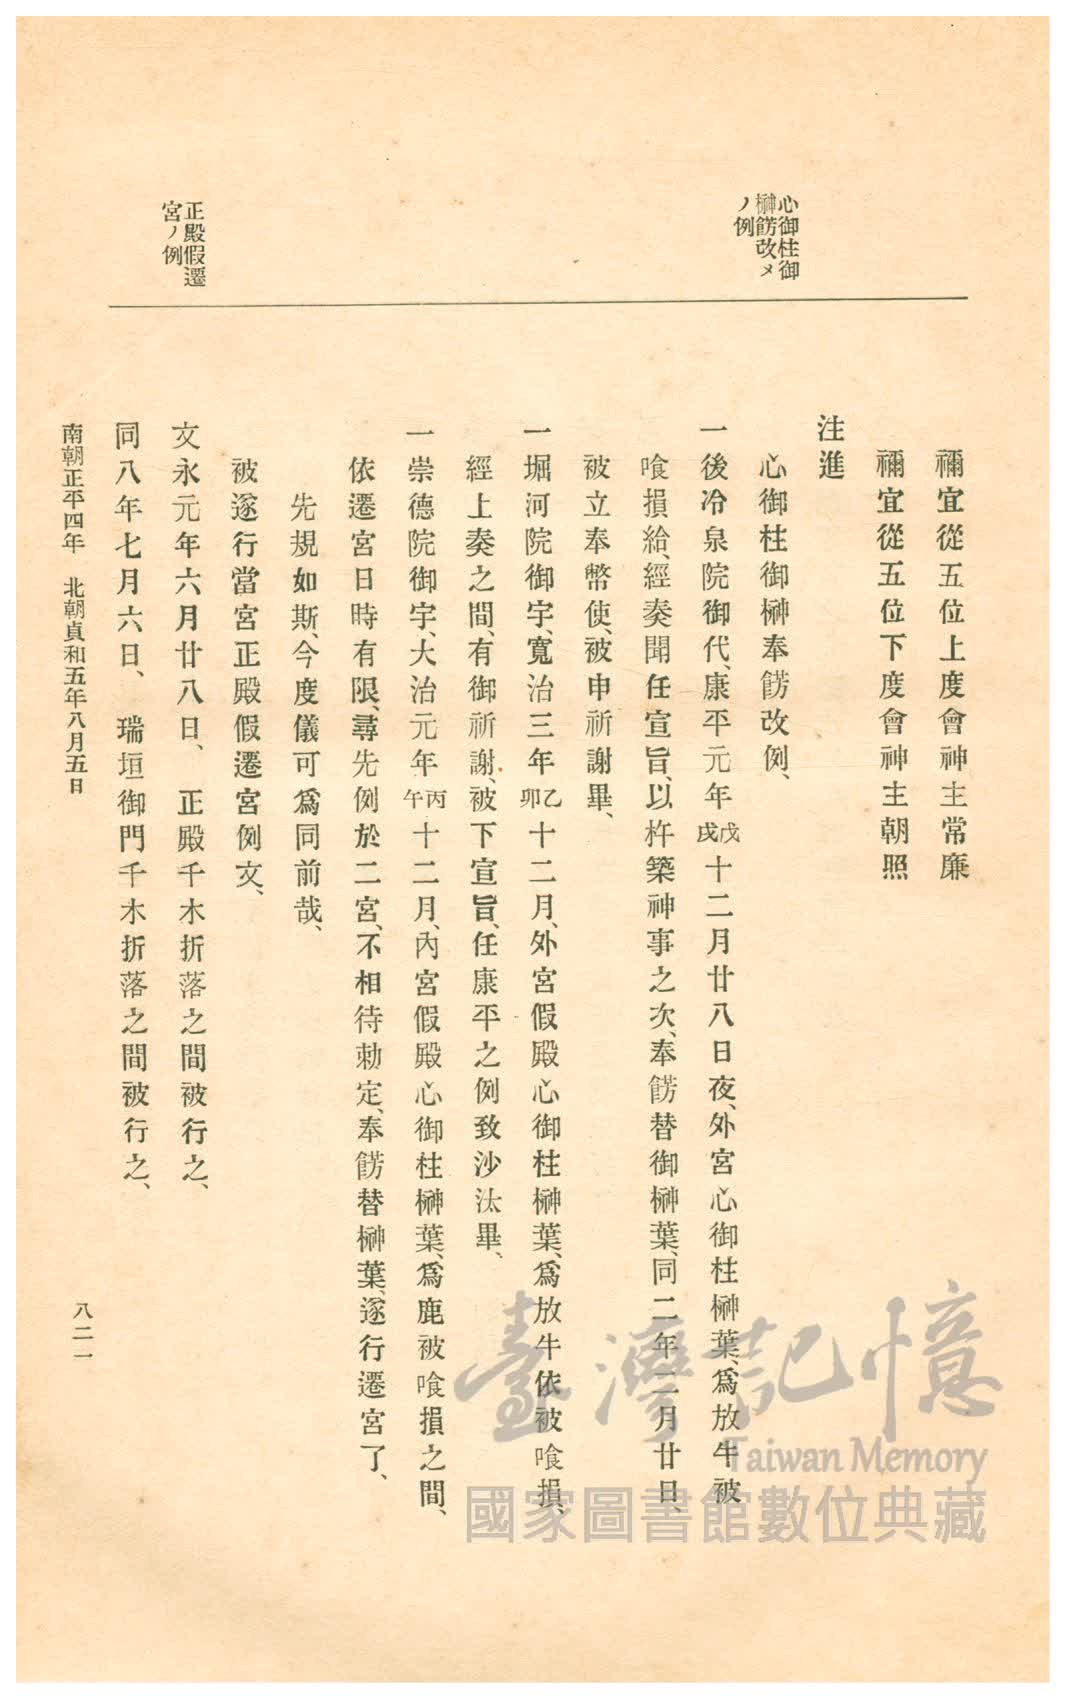 心御柱御
榊餝改メ
ノ例
正殿假遷
宮ノ例
禰宜從五位上度會神主常廉
禰宜從五位下度會神主朝照
注進
心御柱御榊奉餝改例、
一後冷泉院御代、康平元年戊戌十二月廿八日夜、外宮心御柱榊葉、爲放牛被
喰損給、經奏聞任宣旨、以杵築神事之次、奉餝替御榊葉、同二年二月廿日、
被立奉幣使、被申祈謝畢、
一堀河院御宇、寬治三年乙卯十二月、外宮假殿心御柱榊葉、爲放牛依被喰損、
經上奏之間、有御祈謝、被下宣旨、任康平之例致沙汰畢、
一崇德院御宇、大治元年丙午十二月、內宮假殿心御柱榊葉、爲鹿被喰損之間、
依遷宮日時有限、尋先例於二宮、不相待勅定、奉餝替榊葉、遂行遷宮了、
先規如斯、今度儀可爲同前哉、
被遂行當宮正殿假遷宮例文、
文永元年六月廿八日、正殿千木折落之間被行之、
同八年七月六日、瑞垣御門千木折落之間被行之、
南朝正平四年 北朝貞和五年八月五日
八二一
臺灣記憶
Taiwan Memory
國家圖書館數位典藏